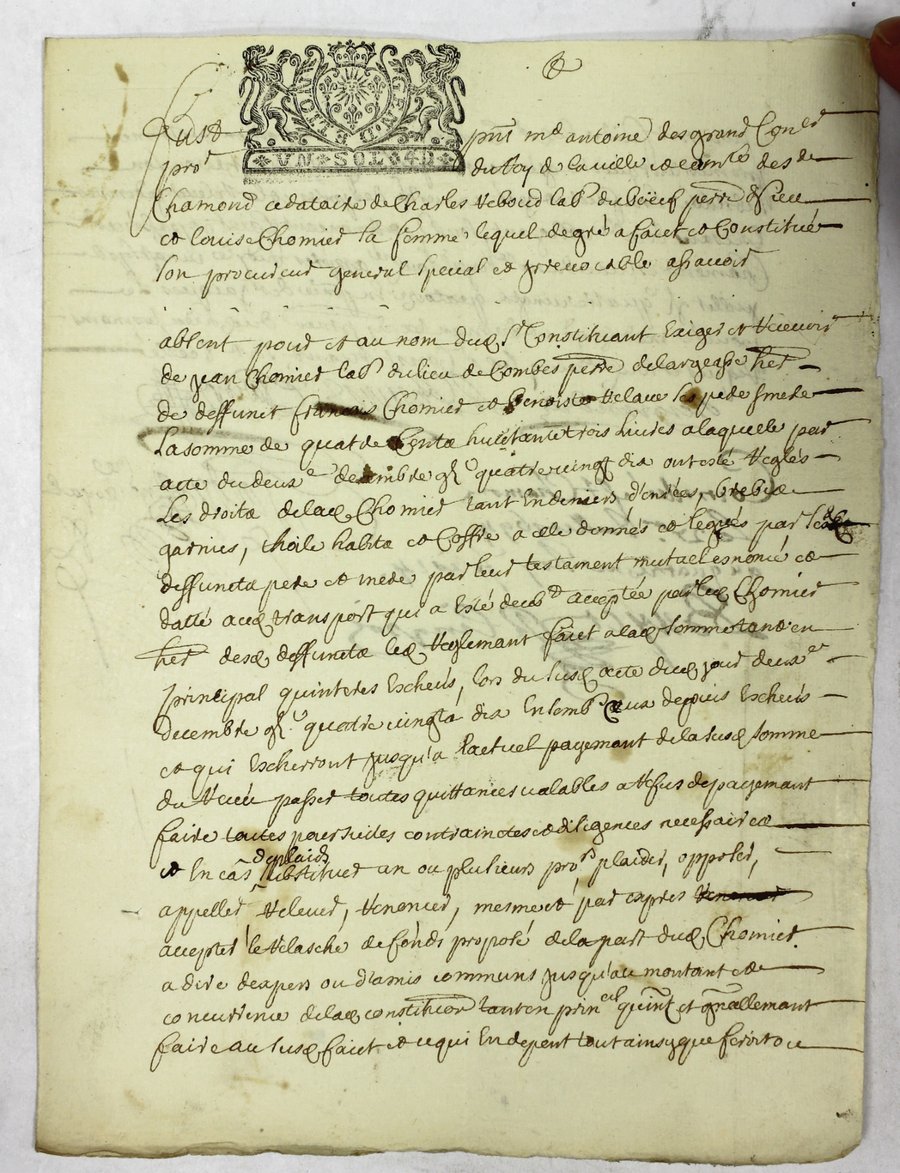 GEN. DE LION
VN SOL 4D
Fust pnt me antoine desgrand Coner
pror du Roy de la ville et de St
Chamond cedataire de Charles Reboud labr du boeuf perre
et louise Chomier sa femme lequel de gré a faict et Constitué
son procureur general special et irrevocable assavoir
absent pour et au nom dud sr Constituant Exiger et Recevoir
de jean Chomier labr du lieu de Combes perre de largeasse her
de deffunct françois Chomier et benoiste ses pere & mere
la somme de quatre Cents huictante trois livres a laquelle par
acte du deuxe decembre quatre vingt dix ont esté Reglés
Les droits de lad Chomier tant En deniers brebis
garnies, thoile habits et Coffre a elle donnés et legués par lesd
deffuncts pere et mere par leur testament mutuel enoncé et
datté aud transport qui a Esté acceptée par led Chomier
her desd deffuncts led Reglemant faict a lad somme tant en
principal qu'interes Escheus, lors du susd acte dud jour deuxe
decembre quatre vingts dix Ensemble Ceux depuis Escheus
et qui Escherront jusqu'a l'actuel payemant de la susd somme
du Receu passer toutes quittances valables a Refus de payemant
faire toutes poursuites contrainctes et diligences necessaires
et En cas de plaids substituer un ou plusieurs prors, plaider, opposer,
appeller Relever, Renoncer, mesme et par expres
accepter le Relasche de fonds proposé de la part dud Chomier
a dire d'expers ou d'amis communs jusqu'au montant et
concurrence de lad constitution tant en princal qu'int et gnallemant
faire au susd faict et ce qui En depent tout ainsy que feroit ou